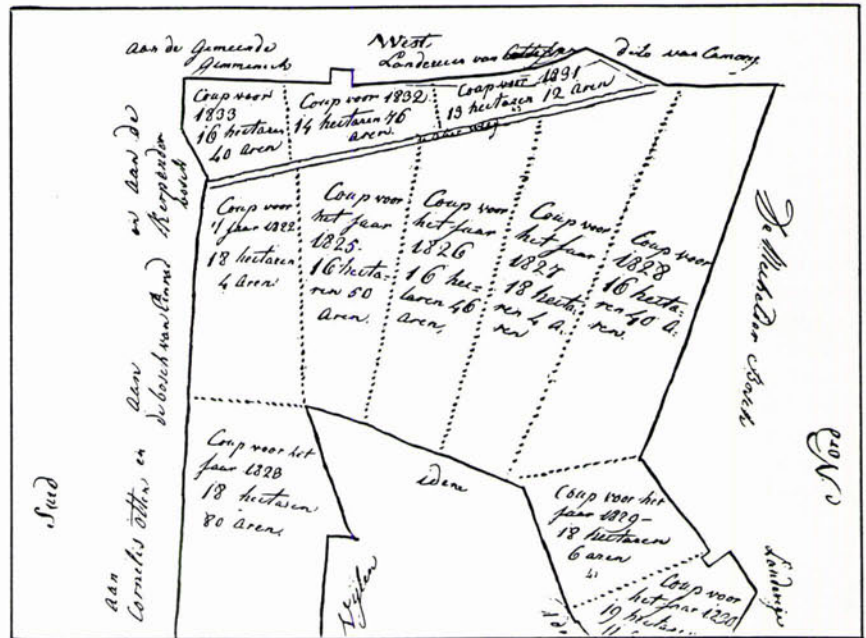 West
aan de Gemeende
Gimmenich
Landereien van
dito van
Coup voor
1833
16 hectaren
40 aren
Coup voor 1832
14 hectaren 76
aren.
Coup voor 1831
13 hectaren 12 aren
weg
en aan de
Kerpender
bosch
Coup voor
't jaar 1822
18 hectaren
4 aren
Coup voor
het jaar
1825.
16 hecta-
ren 50
aren.
Coup voor
het jaar
1826
16 hec-
taren 46
aren,
Coup voor
het jaar
1827
18 hecta-
ren 4 a-
ren
Coup voor
1828
16 hecta-
ren 40 a-
ren.
De Bosch
Nord
Sued
aan
Cornelis Otten en aan
de bosch van
Coup voor het
jaar 1823
18 hectaren
80 aren.
idem
Vijlen
Coup voor het
jaar 1829-
18 hectaren
6 aren
Coup voor
het jaar 1830
19 hectaren
11